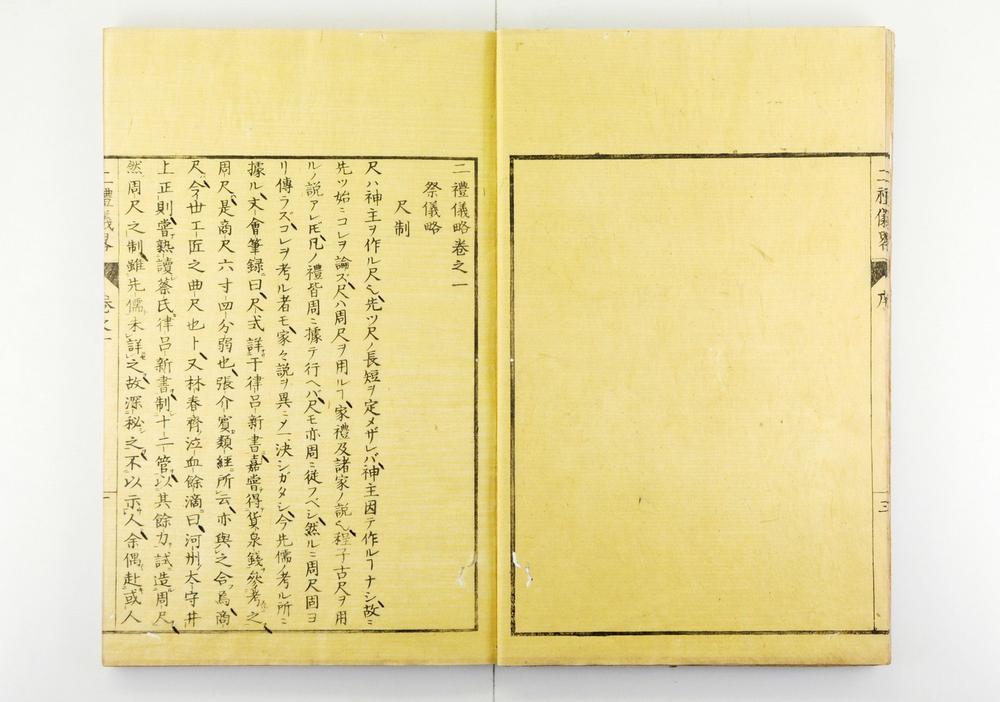 二禮儀畧
序
三
二禮儀略卷之一
祭儀略
尺制
尺ハ神主ヲ作ル尺也先ツ尺ノ長短ヲ定メザレバ神主因テ作ルヿナシ故ニ
先ツ始ニコレヲ論ズ尺ハ周尺ヲ用ルヿ家禮及諸家ノ説也程子古尺ヲ用
ルノ説アレ𪜈凡ノ禮皆周ニ據テ行ヘバ尺モ亦周ニ從フベシ然ルニ周尺固ヨ
リ傳ラズコレヲ考ル者モ家々説ヲ異ニメ一決シガタシ今先儒ノ考ル所ニ
據ル文會筆録曰尺式詳于律呂新書嘉嘗得貨泉錢參考之
周尺是商尺六寸四分弱也張介賓類經所云亦與之合為商
尺今世工匠之曲尺也ト又林春齊泣血餘滴曰河州太守井
上正則嘗熟讀蔡氏律呂新書制十二管以其餘力試造周尺
然周尺之制雖先儒未詳之故深秘之不以示人余偶赴或人
二禮儀畧
卷之一
一